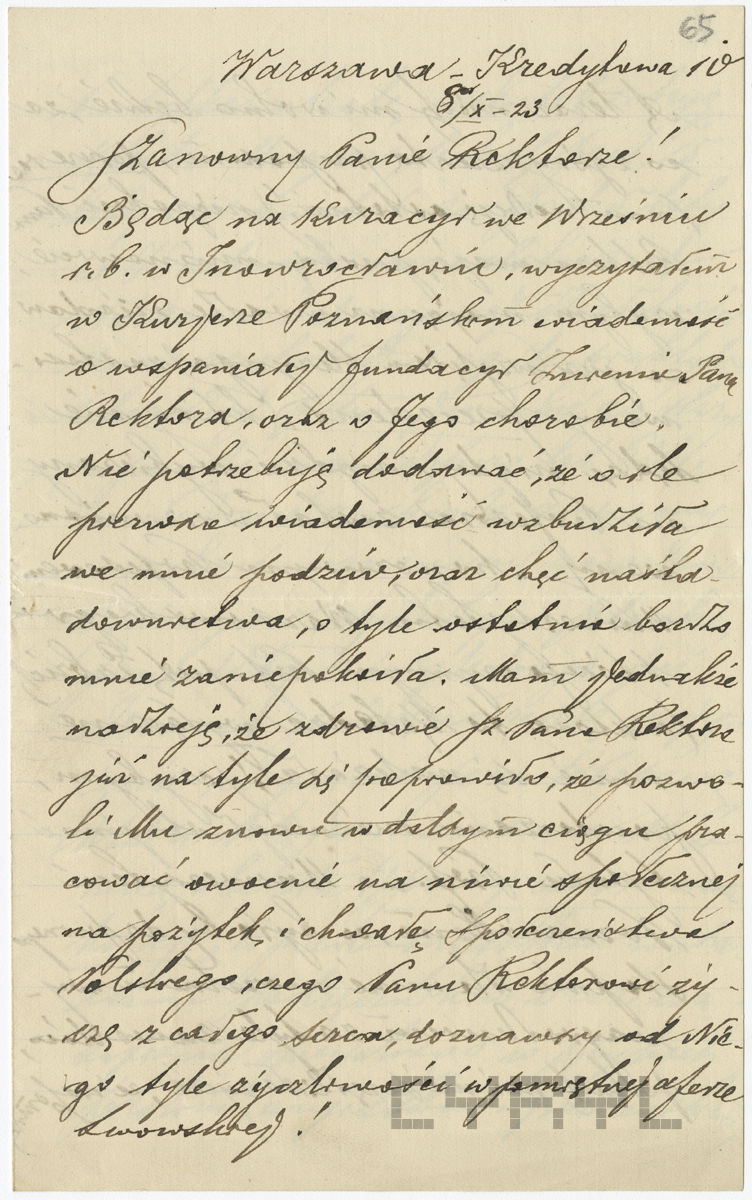 65
Warszawa - Kredytowa 10
8/X - 23
Szanowny Panie Rektorze!
Będąc na kuracyi we Wrześniu
r. b. w Inowrocławiu, wyczytałem
w Kurjerze Poznańskim wiadomość
o wspaniałej fundacyi Imienia Pana
Rektora, oraz o Jego chorobie.
Nie potrzebuję dodawać, że o ile
pierwsza wiadomość wzbudziła
we mnie podziw, oraz chęć naśla-
downictwa, o tyle ostatnia bardzo
mnie zaniepokoiła. Mam jednakże
nadzieję, że zdrowie Sz Pana Rektora
już na tyle się poprawiło, że pozwo-
li Mu znowu w dalszym ciągu pra-
cować owocnie na niwie społecznej
na pożytek i chwałę Społeczeństwa
Polskiego, czego Panu Rektorowi ży-
czę z całego serca, doznawszy od Nie-
go tyle życzliwości w pamiętnej aferze
Lwowskiej!
CYRYL